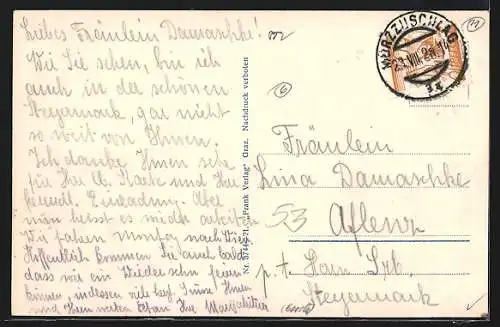 Liebes Fräulein Damaschke!
Wie Sie sehen, bin ich
auch in der schönen
Steyermark, gar nicht
so weit von Ihnen.
Ich danke Ihnen sehr
für Ihre lb. Karte und Ihre
freundl. Einladung. Aber
nun heisst es wieder arbeiten.
Wir fahren Montag nach Wien
Hoffentlich kommen Sie auch bald
dass wir ein Wiedersehn feiern
können, indessen viele herzl. Grüsse Ihnen
und Ihrer
Nr. 57446/21 „Frank Verlag" Graz. Nachdruck verboten
MÜRZZUSCHLAG
Fräulein
Lina Damaschke
53 Aflenz
p. t.
Steyermark